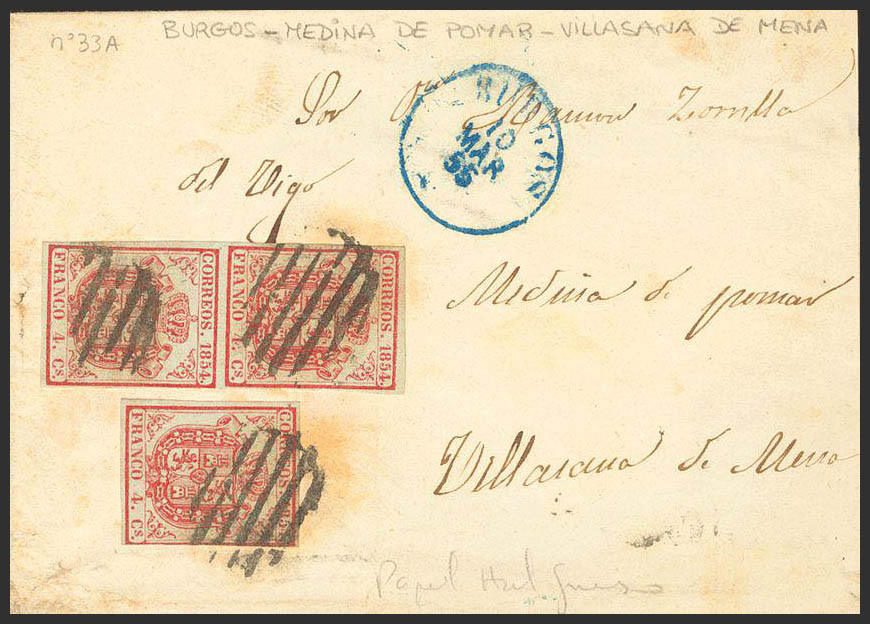 BURGOS - MEDINA DE POMAR - VILLASANA DE MENA
nº33A
BURGOS
10
MAR
55
Ramon Zorrilla
del Vigo
CORREOS. 1854.
FRANCO 4. CS.
CORREOS. 1854.
FRANCO 4. CS.
Medina de pomar
CORREOS. 1854
FRANCO 4. CS.
Villasana de Mena
Papel